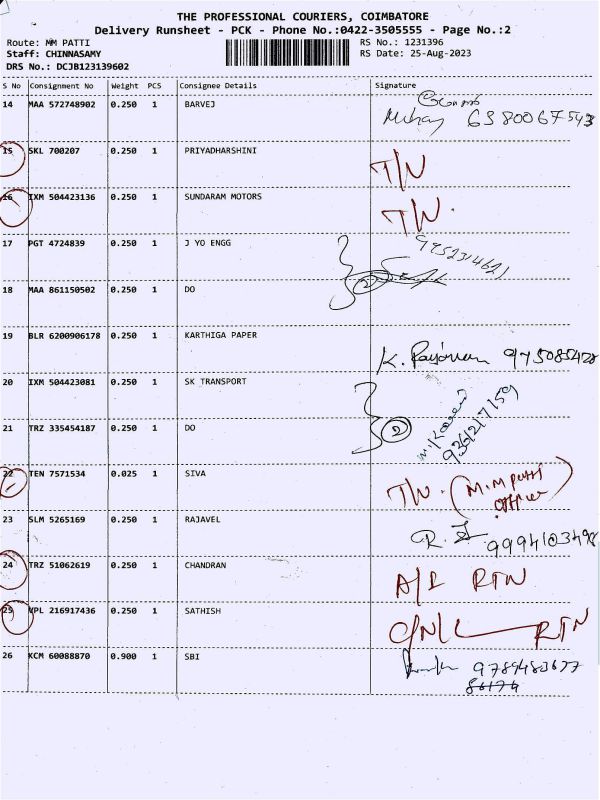 THE PROFESSIONAL COURIERS, COIMBATORE
Delivery Runsheet - PCK - Phone No.:0422-3505555 - Page No.:2
Route: MM PATTI
RS No.: 1231396
Staff: CHINNASAMY
RS Date: 25-Aug-2023
DRS No.: DCJB123139602
S No Consignment No Weight PCS Consignee Details Signature
14 MAA 572748902 0.250 1 BARVEJ
6380067543
15 SKL 700207 0.250 1 PRIYADHARSHINI
T/N
16 IXM 504423136 0.250 1 SUNDARAM MOTORS
T/N.
17 PGT 4724839 0.250 1 J YO ENGG
9952314621
18 MAA 861150502 0.250 1 DO
2
19 BLR 6200906178 0.250 1 KARTHIGA PAPER
K.
20 IXM 504423081 0.250 1 SK TRANSPORT
21 TRZ 335454187 0.250 1 DO
2
9361217159
22 TEN 7571534 0.025 1 SIVA
T/N. (M.M Patti office)
23 SLM 5265169 0.250 1 RAJAVEL
9994103498
24 TRZ 51062619 0.250 1 CHANDRAN
A/R RTN
25 VPL 216917436 0.250 1 SATHISH
C/N/L RTN
26 KCM 60088870 0.900 1 SBI
9789483677
86174